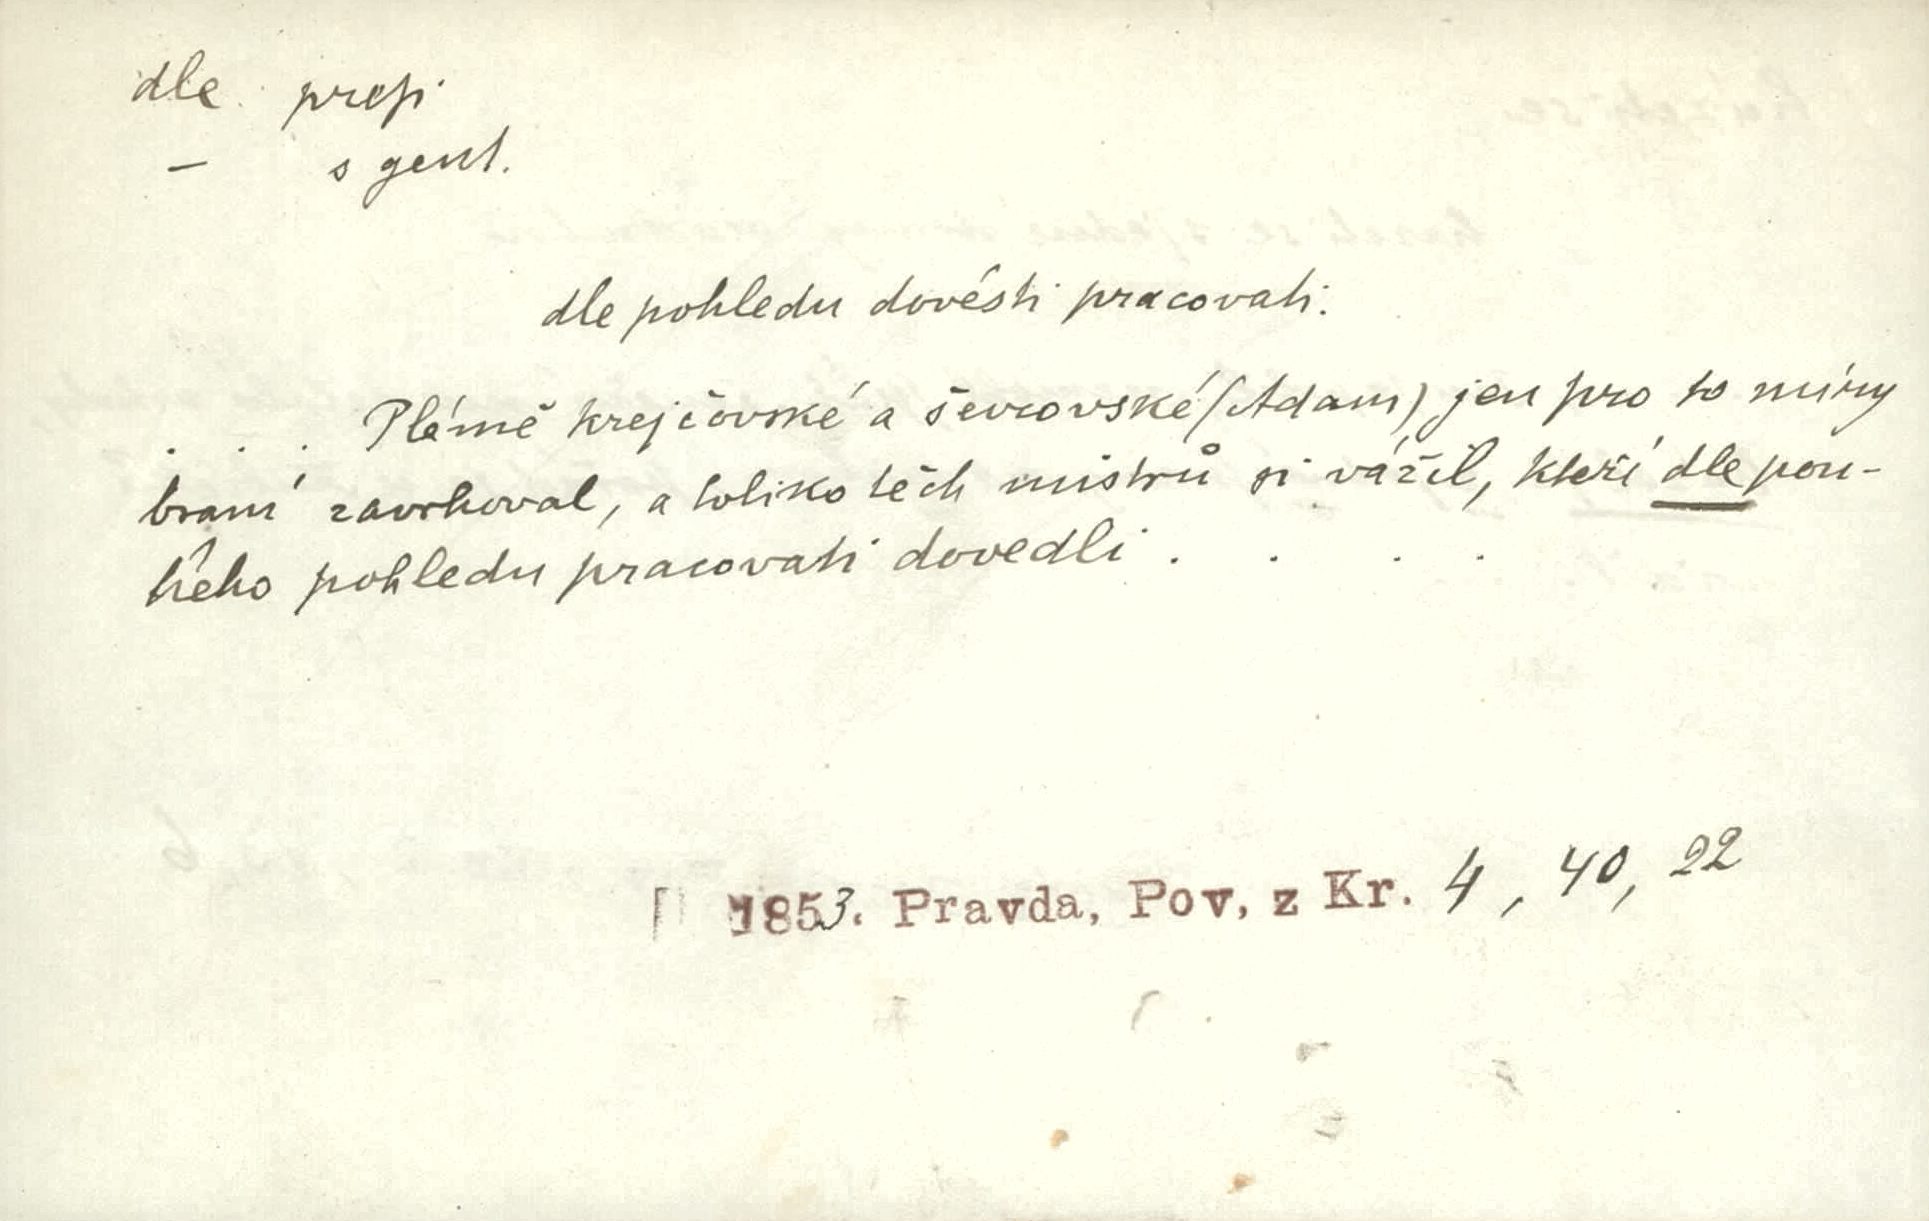 dle præp.
— s gent.
dle pohledu dovésti pracovati.
. . . Plémě krejčovské a ševcovské (Adam) jen pro to míry
braní zavrhoval, a toliko těch mistrů si vážil, kteří dle pou-
hého pohledu pracovati dovedli . . . .
1853. Pravda, Pov, z Kr. 4, 40, 22